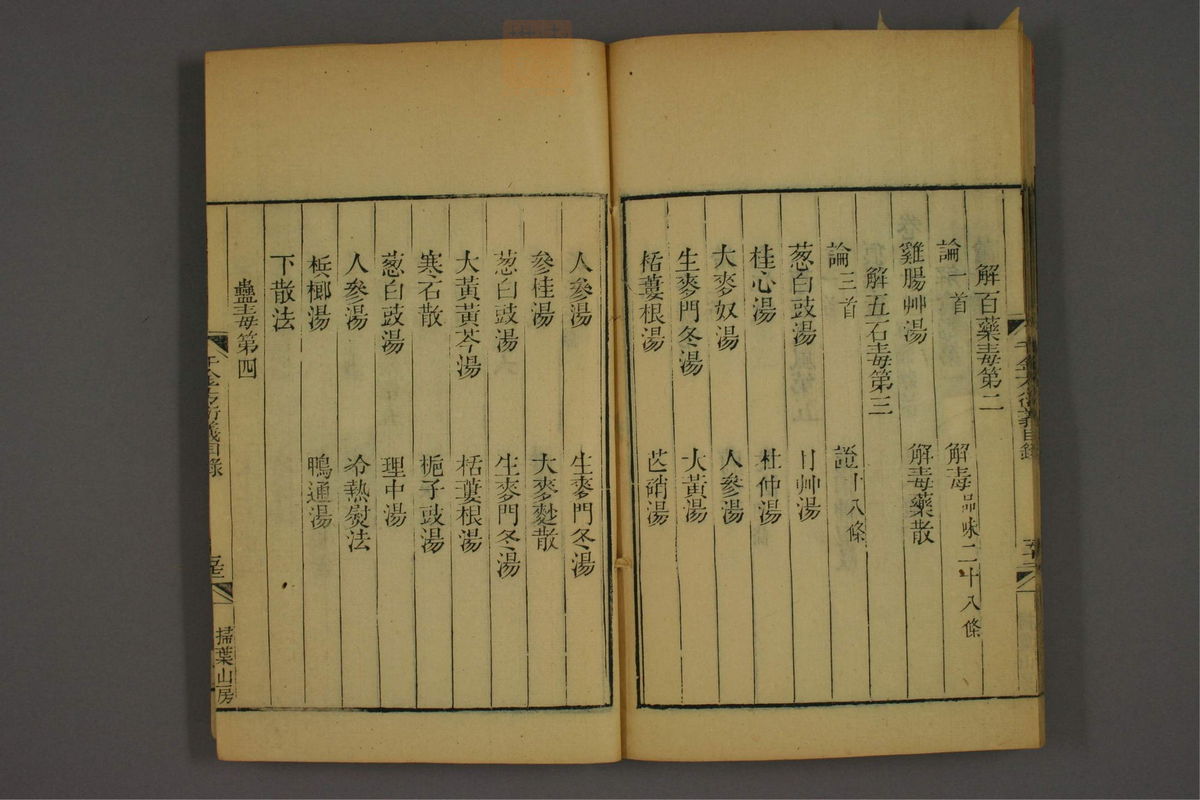 解百藥毒第二
論一首　解毒品味二十八條
雞腸艸湯　解毒藥散
解五石毒第三
論三首　證十八條
葱白豉湯　甘艸湯
桂心湯　杜仲湯
大麥奴湯　人參湯
生麥門冬湯　大黃湯
栝蔞根湯　芒硝湯
人參湯　生麥門冬湯
參桂湯　大麥麨散
葱白豉湯　生麥門冬湯
大黃黃芩湯　栝蔞根湯
寒石散　梔子豉湯
葱白豉湯　理中湯
人參湯　冷熱熨法
檳榔湯　鴨通湯
下散法
蠱毒第四
千金方衍義目錄
掃葉山房